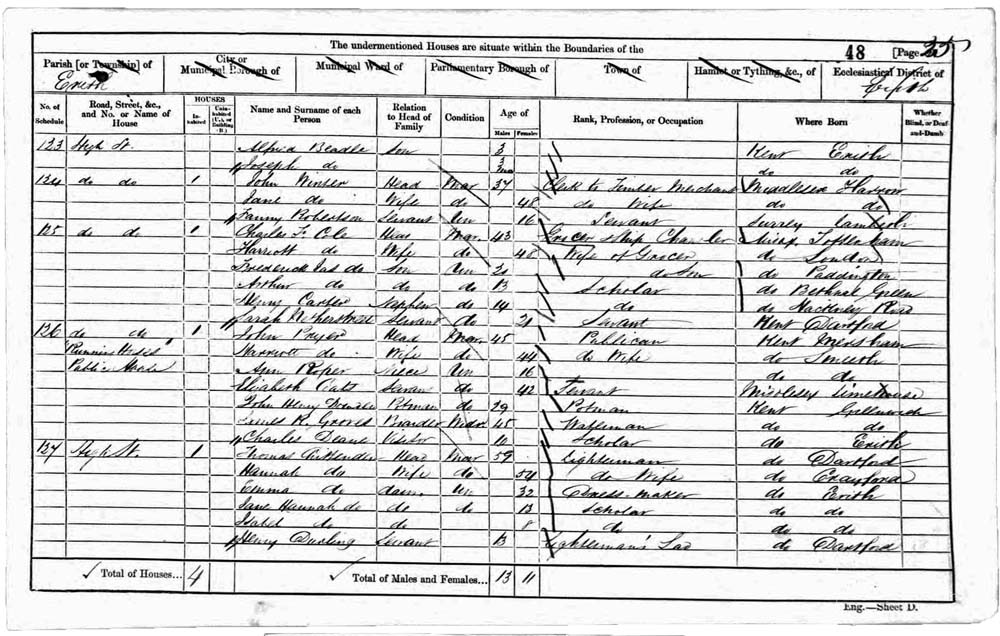 The undermentioned Houses are situate within the Boundaries of the
48 [Page 35
Parish [or Township] of City or Municipal Borough of Municipal Ward of Parliamentary Borough of Town of Hamlet or Tything, &c., of Ecclesiastical District of
Erith Erith
No. of Schedule Road, Street, &c., and No. or Name of House HOUSES Inhabited Uninhabited (U.), or Building (B.) Name and Surname of each Person Relation to Head of Family Condition Age of Males Females Rank, Profession, or Occupation Where Born Whether Blind, or Deaf-and-Dumb
123 High St. Alfred Beadle Son 3 Kent Erith
Joseph do do do
124 do do 1 John Winter Head Mar 37 Clerk to Timber Merchant Middlesex Harrow
Jane do Wife do 48 do Wife do do
Fanny Robertson Servant Un 16 Servant Surrey Lambeth
125 do do 1 Charles F. Cole Head Mar. 43 Grocer & Ship Chandler Middx Tottenham
Harriott do Wife do 48 Wife of Grocer do London
Frederick Jas do Son Un do Son do Paddington
Arthur do do do 13 Scholar do Bethnal Green
Henry Carter Nephew do 14 do do Hackney Road
Sarah Servant do 21 Servant Kent Dartford
126 do do 1 John Pryer Head Mar. 45 Publican Kent Mersham
"Running Horses" Harriott do Wife do 44 do Wife do Smeeth
Public House Ann Roper Niece Un 16 do do
Elizabeth Servan do 42 Servant Middlesex Limehouse
John Henry Potman do 29 Potman Kent Greenwich
James R. Groves Boarder Widr 45 Waterman do do
Charles Deane Visitor 10 Scholar do Erith
127 High St. 1 Thomas Head Mar 59 Lighterman do Dartford
Hannah do Wife do 54 do Wife do Crayford
Emma do daur. Un 32 Dress-maker do Erith
Jane Hannah do do do 13 Scholar do do
Isabel do do 8 do do do
Henry Durling Servant 13 Lighterman's Lad do Dartford
Total of Houses... 4 Total of Males and Females... 13 11
Eng.—Sheet D.